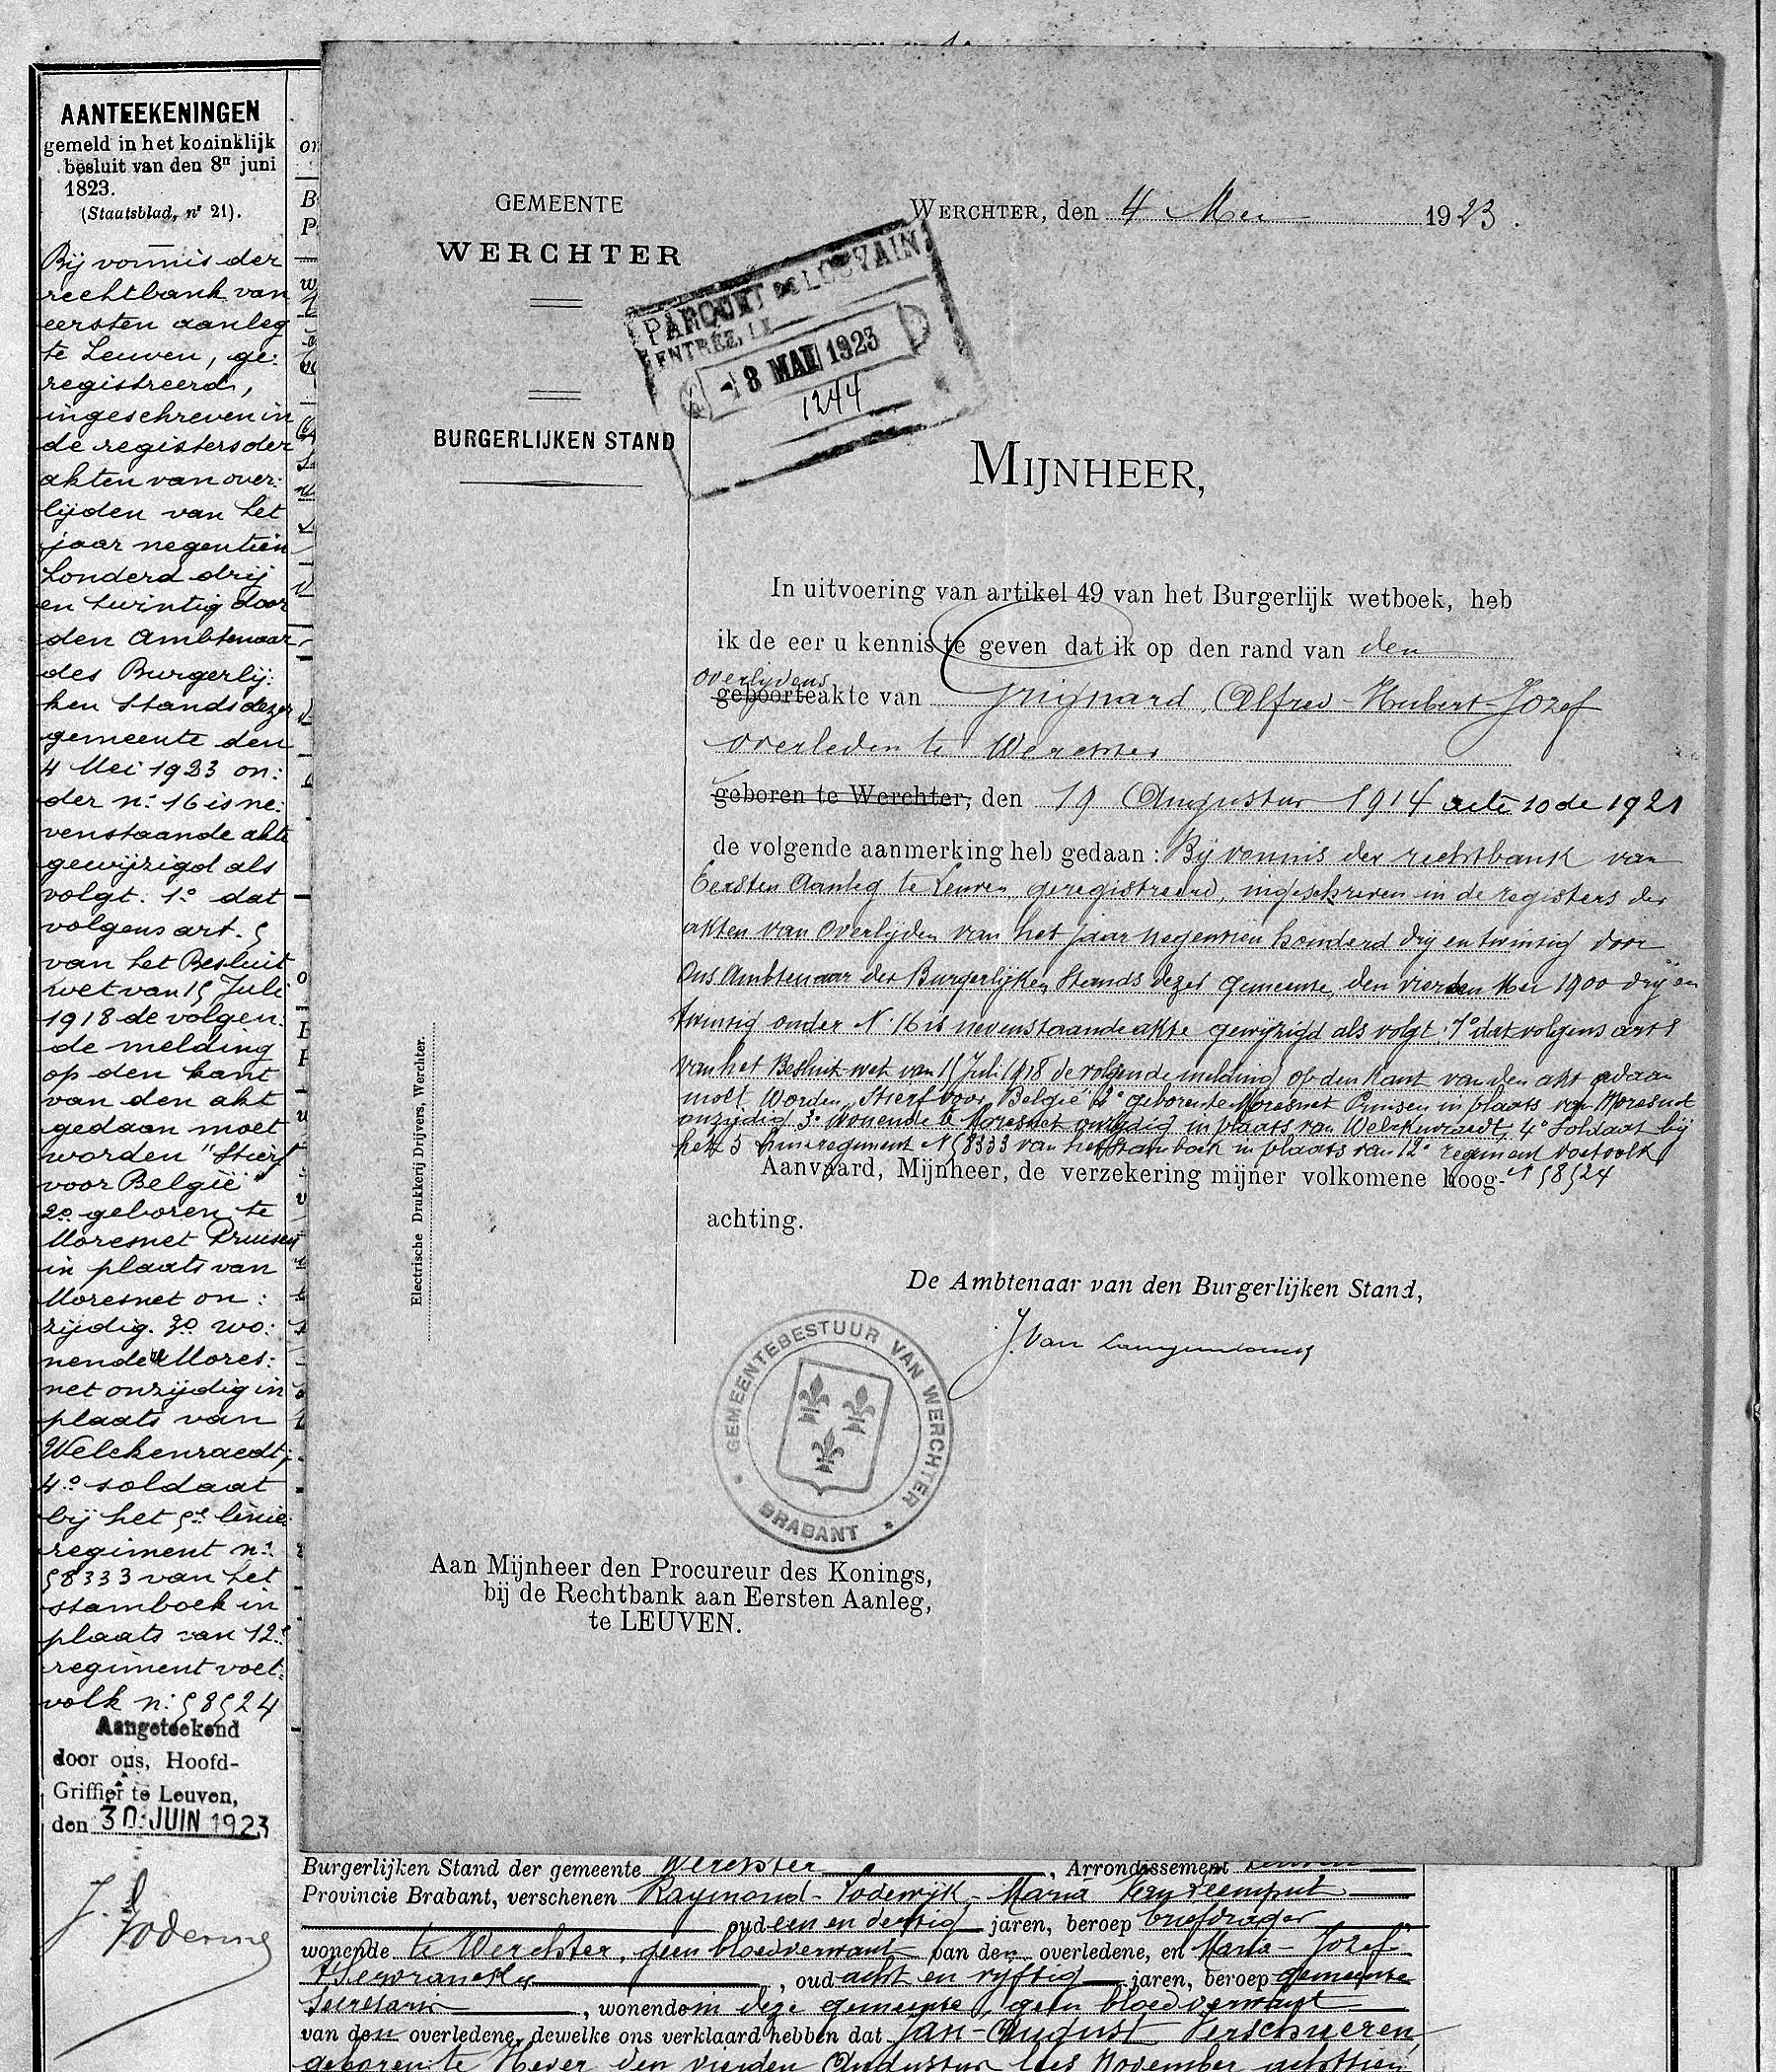 AANTEEKENINGEN
gemeld in het koninklijk
besluit van den 8n juni
1823.
(Staatsblad, nr 21).
Bij vonnis der
rechtbank van
eersten aanleg
te Leuven, ge:
registreerd,
ingeschreven in
de registers der
akten van over:
lijden van het
jaar negentien
honderd drij
en twintig door
den Ambtenaar
des Burgerlij:
ken Stands dezer
gemeente den
4 Mei 1923 on:
der n: 16 is ne:
venstaande akte
gewijzigd als
volgt: 1o dat
volgens art. 5
van het Besluit
wet van 15 Juli
1918 de volgen:
de melding
op den kant
van den akt
gedaan moet
worden "Stierf
voor België"
2o geboren te
Moresnet Pruisen
in plaats van
Moresnet on:
zijdig. 3o wo:
nende te Mores:
net onzijdig in
plaats van
Welckenraedt;
4o soldaat
bij het 5e linie
regiment n:
58333 van het
stamboek in
plaats van 12e
regiment voet:
volk n: 58524
Aangeteekend
door ons, Hoofd-
Griffier te Leuven,
den 30 JUIN 1923
GEMEENTE
WERCHTER
BURGERLIJKEN STAND
WERCHTER, den 4 Mei 1923.
PARQUET DE LOUVAIN
ENTRÉE, LE
-8 MAI 1923
1244
MIJNHEER,
In uitvoering van artikel 49 van het Burgerlijk wetboek, heb
ik de eer u kennis te geven dat ik op den rand van den
overlijdens
geboorteakte van Grignard, Alfred-Hubert-Jozef
overleden te Werchter
geboren te Werchter, den 19 Augustus 1914 acte 10 de 1921
de volgende aanmerking heb gedaan: Bij vonnis der rechtbank van
Eersten Aanleg te Leuven, geregistreerd, ingeschreven in de registers der
akten van Overlijden van het jaar negentien honderd drij en twintig door
Ons Ambtenaar des Burgerlijken Stands dezer gemeente, den vierden Mei 1900 drij en
twintig onder N. 16 is nevenstaande akte gewijzigd als volgt: 1o dat volgens art 5
van het Besluit-wet van 15 Juli 1918 de volgende melding op den kant van den akt gedaan
moet worden "Stierf voor België" 2o geboren te Moresnet Pruisen in plaats van Moresnet
onzijdig 3o wonende te Moresnet onzijdig in plaats van Welckenraedt, 4o Soldaat bij
het 5 linieregiment N 58333 van het stamboek in plaats van 12e regiment voetvolk
N 58524
Aanvaard, Mijnheer, de verzekering mijner volkomene hoog-
achting.
De Ambtenaar van den Burgerlijken Stand,
GEMEENTEBESTUUR VAN WERCHTER
BRABANT
Electrische Drukkerij Drijvers, Werchter.
Aan Mijnheer den Procureur des Konings,
bij de Rechtbank aan Eersten Aanleg,
te LEUVEN.
Burgerlijken Stand der gemeente Werchter, Arrondissement Leuven
Provincie Brabant, verschenen Raymond-Lodewijk-Maria
oud een en dertig jaren, beroep briefdrager
wonende te Werchter, geen bloedverwant van den overledene, en Maria-Jozef
, oud acht en vijftig jaren, beroep gemeente
Secretaris, wonende in deze gemeente, geen bloedverwant
van den overledene, dewelke ons verklaard hebben dat Jan-August Verschueren,
geboren te Hever den vierden Augustus